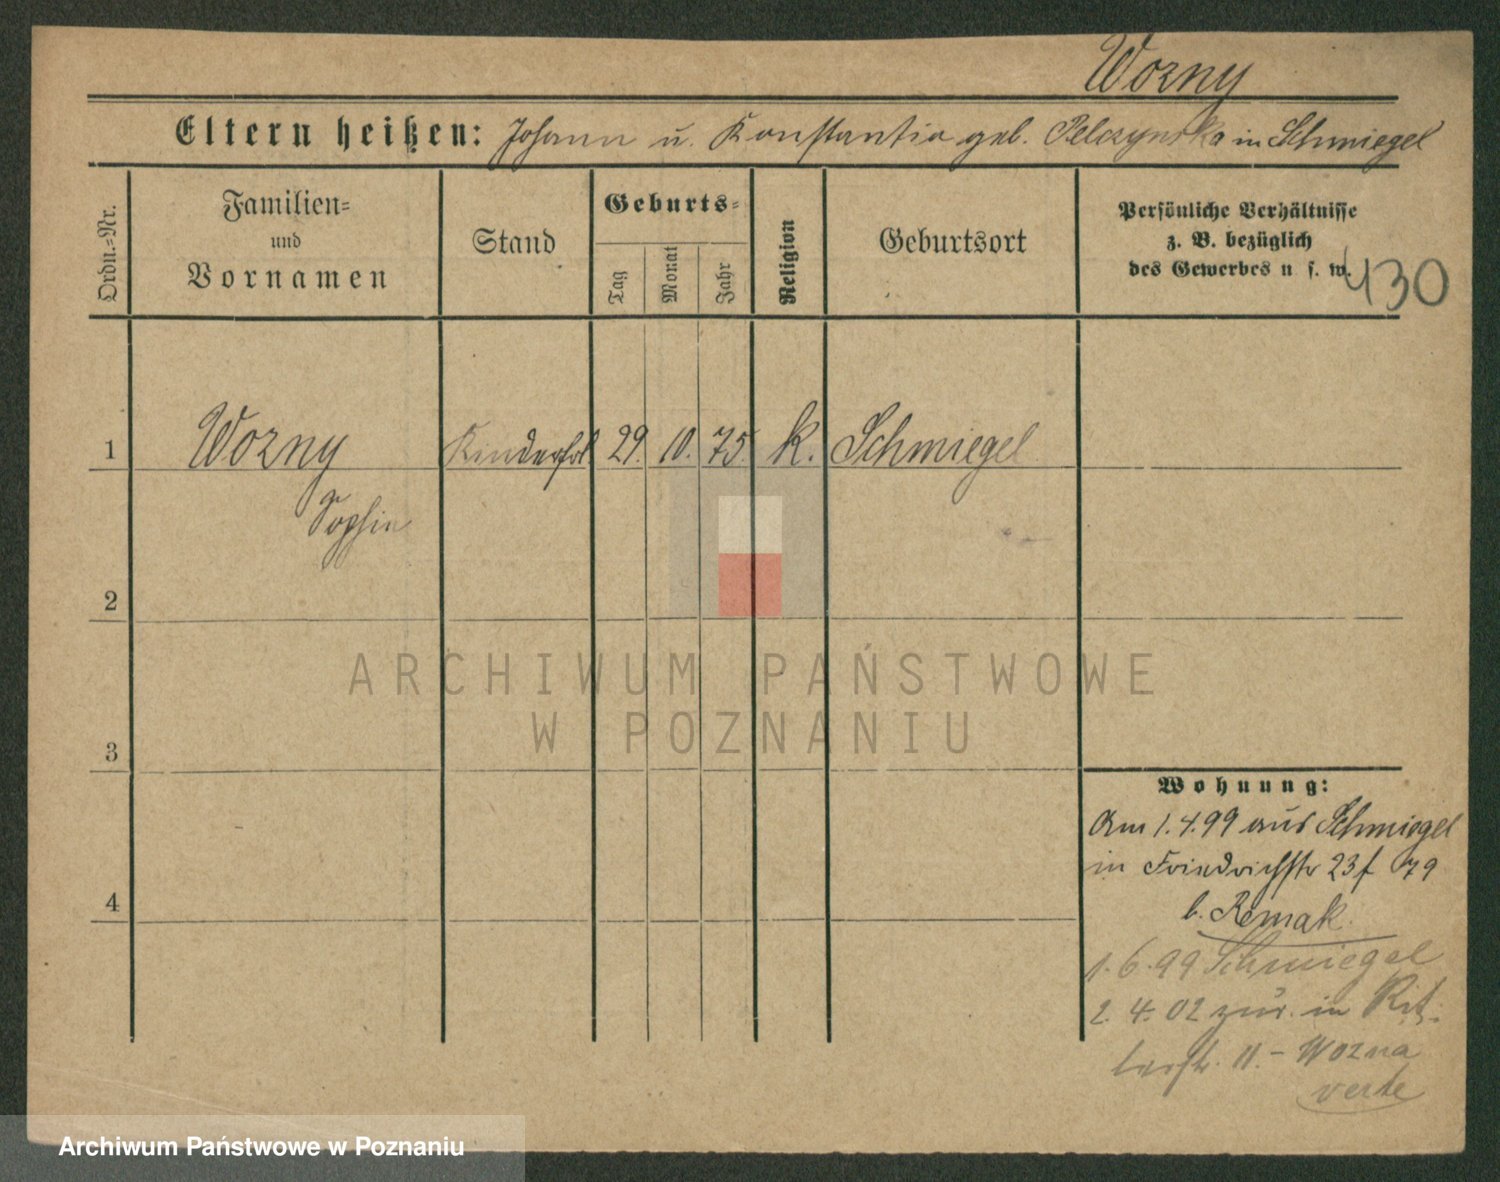 Worny
Eltern heißen: Johann u. Konstantia geb. Pelczynska in Schmiegel
Ordn.-Nr.
Familien-
und
Vornamen
Stand
Geburts-
Tag
Monat
Jahr
Religion
Geburtsort
Persönliche Verhältnisse
z. B. bezüglich
des Gewerbes u s. w.
430
1 Worny Kinderfrl 29. 10. 75 k. Schmiegel
Sophie
2
3
4
Wohnung:
Am 1.4.99 aus Schmiegel
in Friedrichstr 23f 79
b. Remak.
1.6.99 Schmiegel
2. 4. 02 zur. in Rit-
terstr. 11. – Wozna
verte
ARCHIWUM PAŃSTWOWE
W POZNANIU
Archiwum Państwowe w Poznaniu